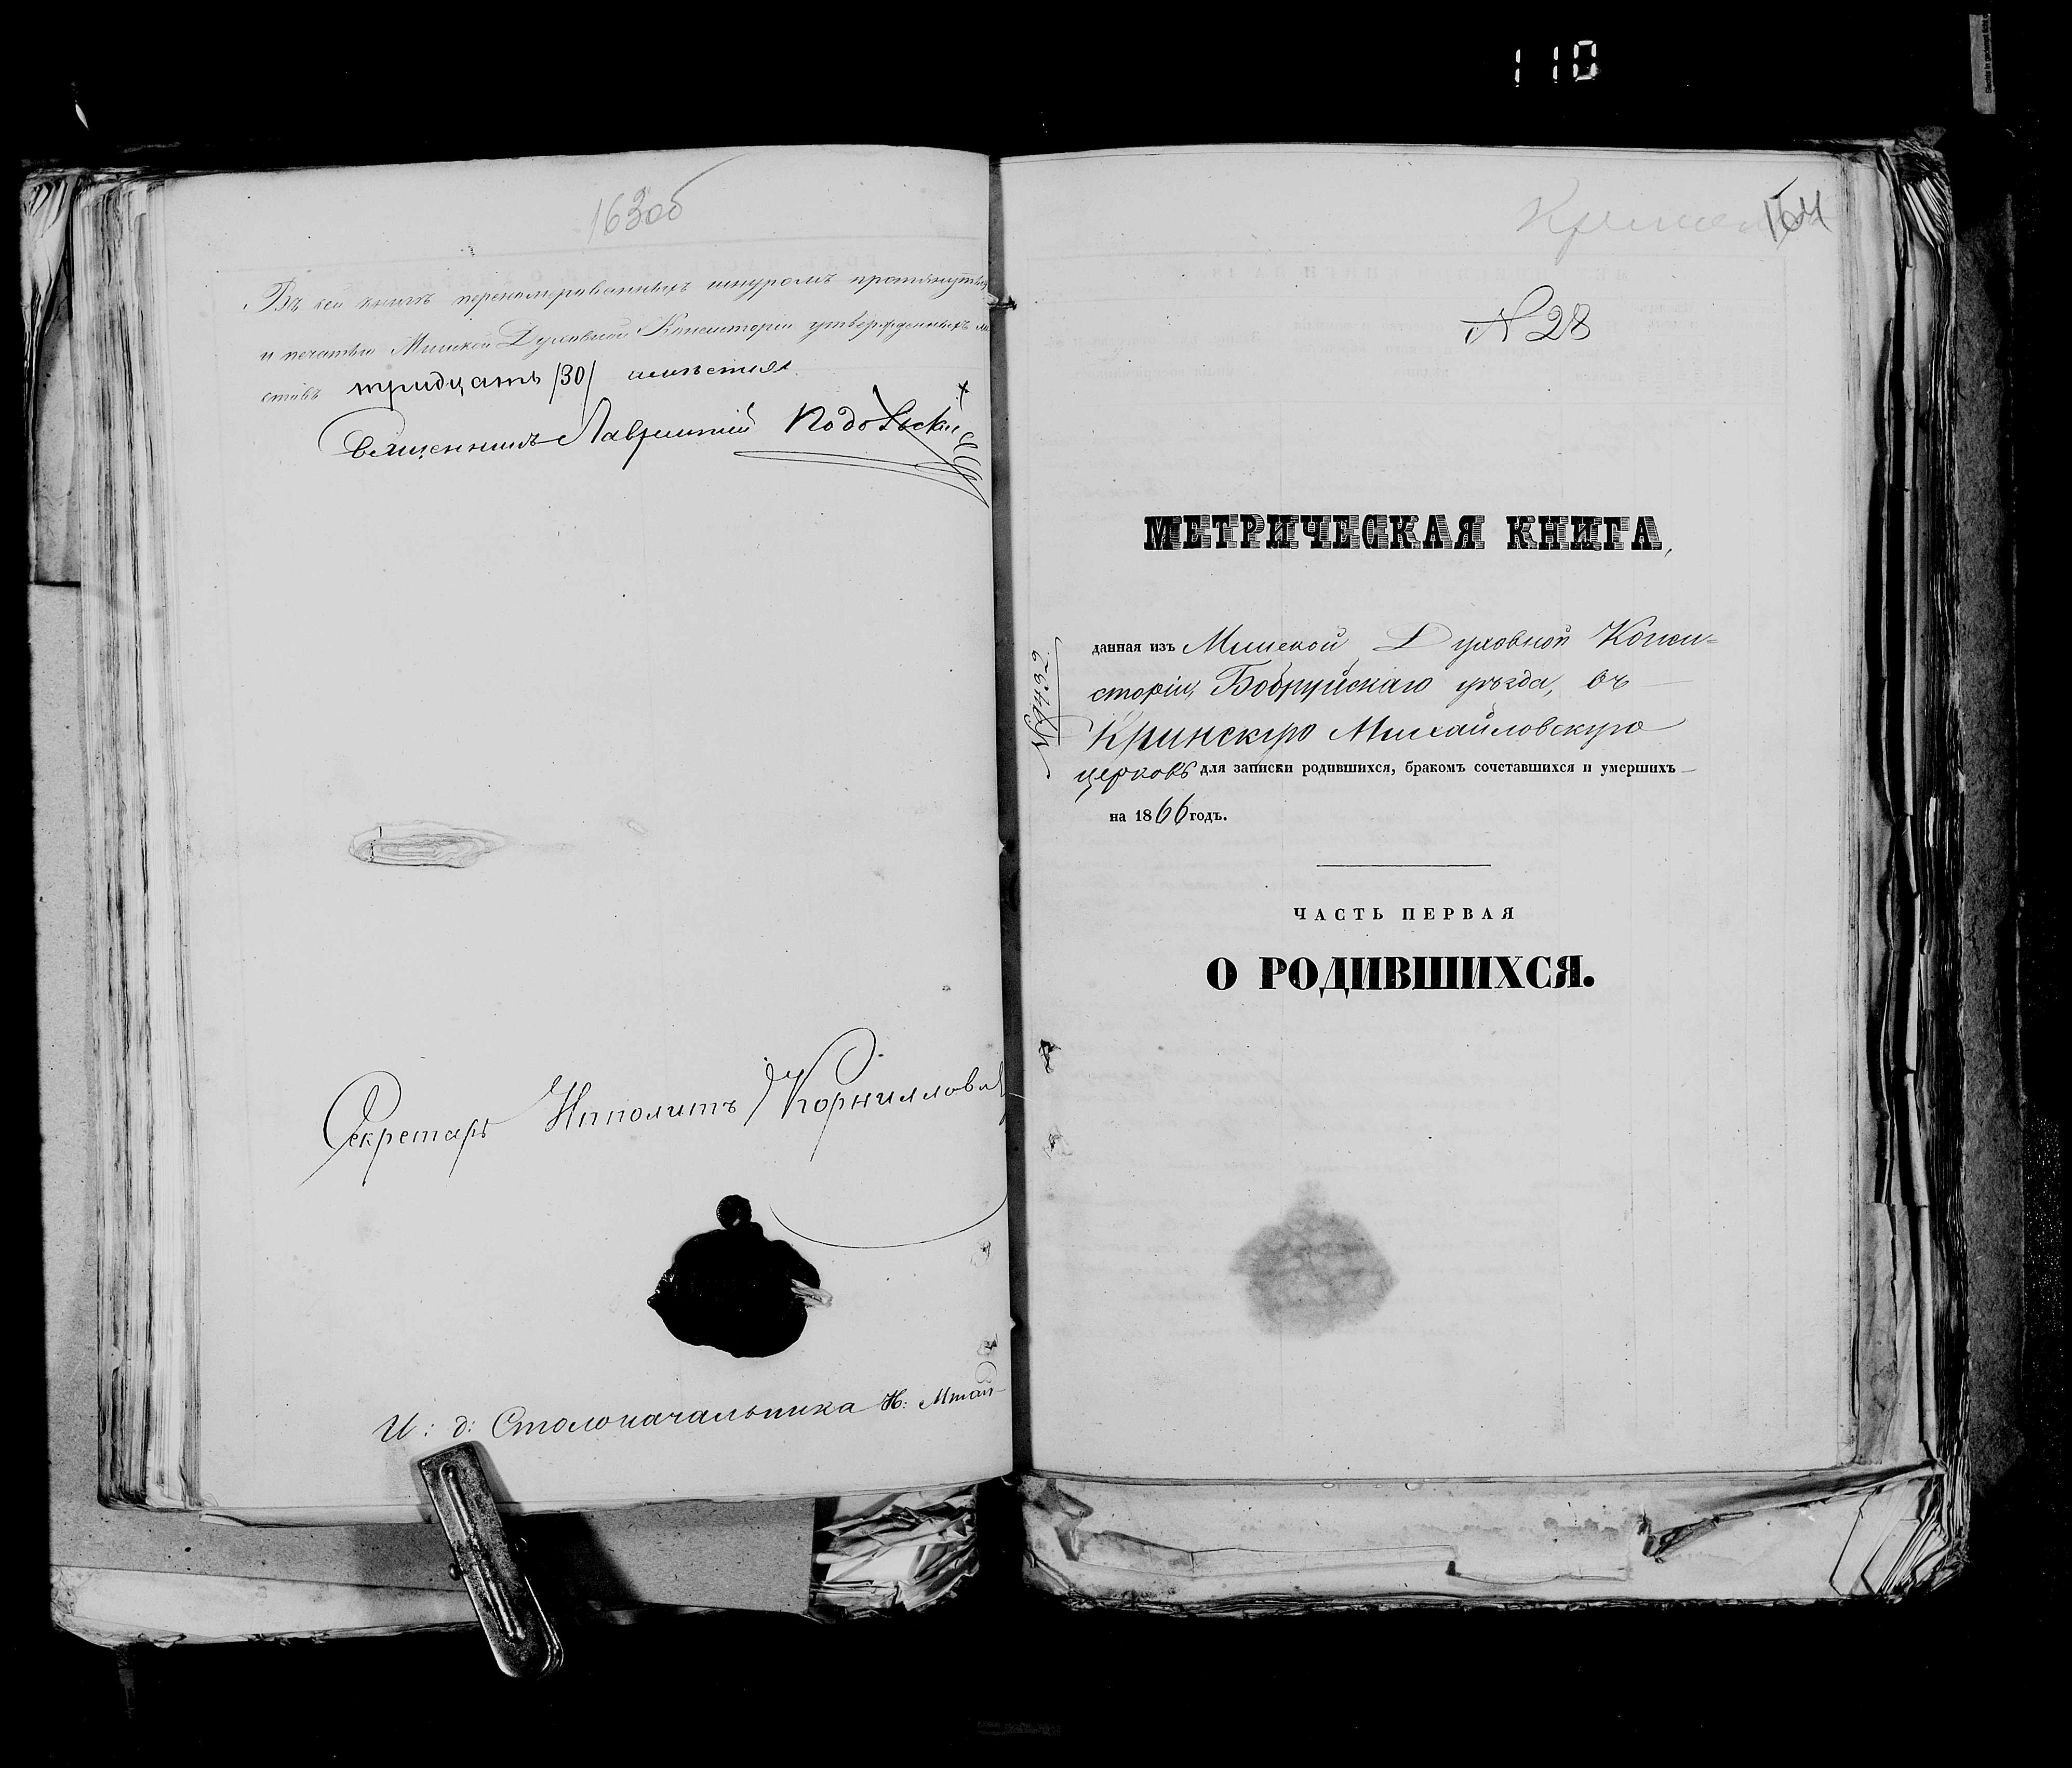 110
163об
Въ сей книгѣ перенумерованныхъ шнуромъ протянутыхъ
и печатью Минской Духовной Консисторіи утвержденныхъ ли
стовъ тридцать /30/
Священникъ Лаврентій Подольскій
Секретарь Ипполитъ Корнилович
И: д: Столоначальника Н:
164
N 28
МЕТРИЧЕСКАЯ КНИГА,
данная изъ Минской Духовной Конси=
сторіи, Бобруйскаго уѣзда, въ
Кринскую Михайловскую
церковь для записки родившихся, бракомъ сочетавшихся и умершихъ
на 1866 годъ.
№ 9432
ЧАСТЬ ПЕРВАЯ
О РОДИВШИХСЯ.